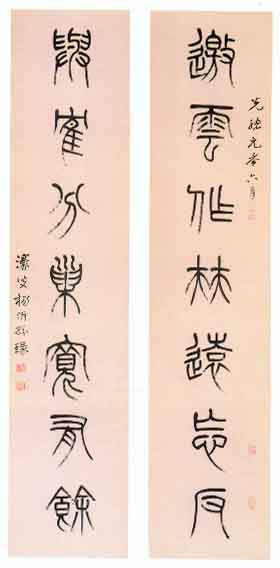 光緒元年六月
邀雲作林遠忘反
與寉分巢寬有餘
濠叟楊沂孫篆